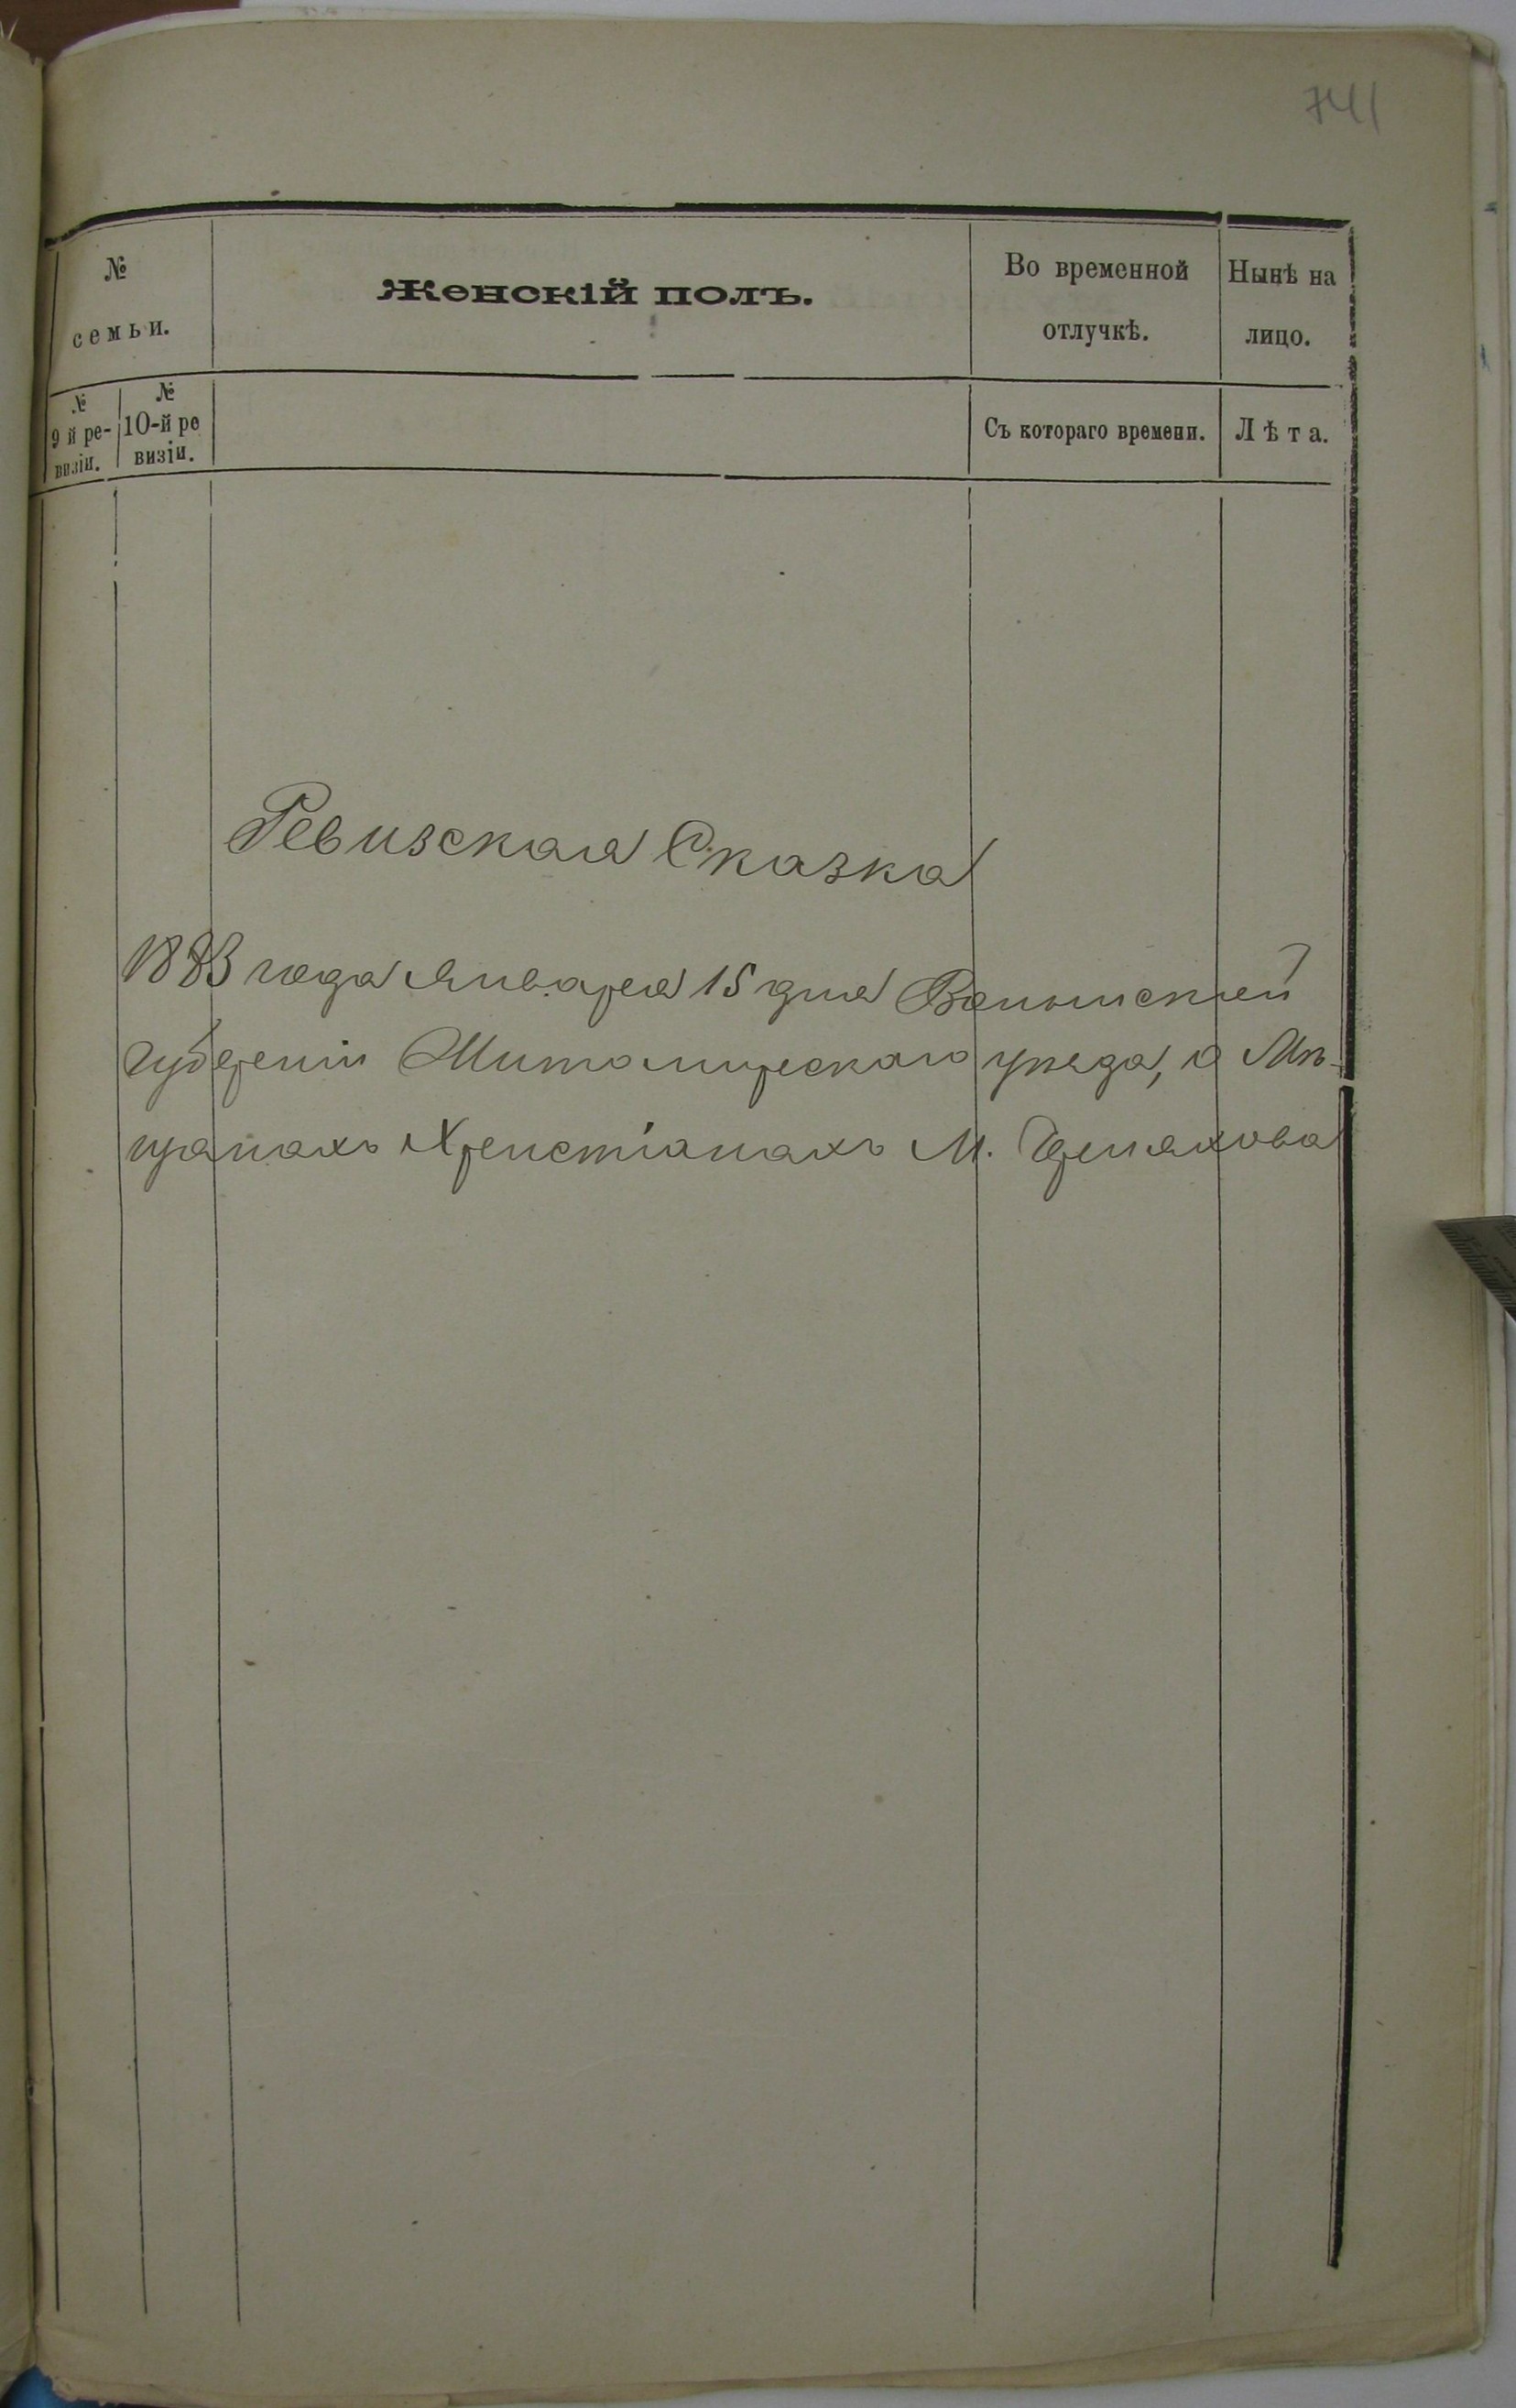 741
№
семьи.
Женскій полъ.
Во временной
отлучкѣ.
Нынѣ на
лицо.
№
9 й ре-
визіи.
№
10-й ре
визіи.
Съ котораго времени.
Лѣта.
Ревизская Сказка
1883 года Января 15 дня Волынской
Губерніи Житомирскаго уѣзда, о Мѣ-
щанахъ Христіанахъ М. Черняхова